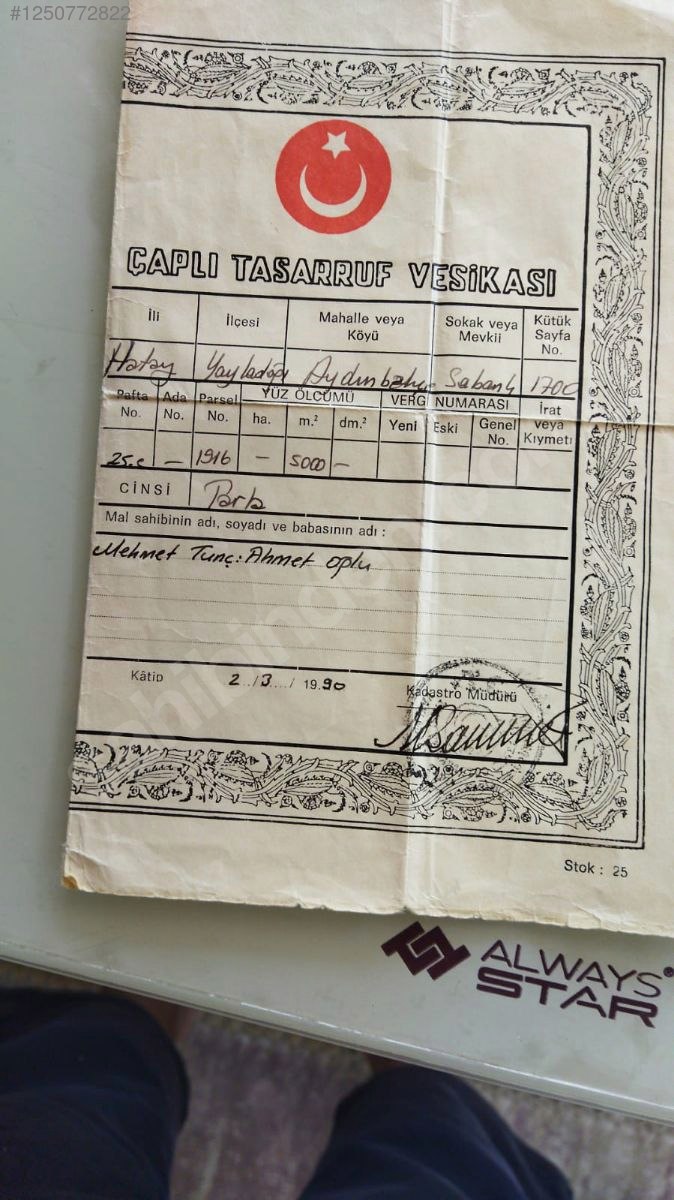 #1250772822
ÇAPLI TASARRUF VESİKASI
İli İlçesi Mahalle veya Köyü Sokak veya Mevkii Kütük Sayfa No.
Hatay Yayladağı Aydınbahçe Saban 4 1700
Pafta No. Ada No. Parsel No. YÜZ ÖLÇÜMÜ VERGİ NUMARASI İrat veya Kıymeti
ha. m.² dm.² Yeni Eski Genel No.
25.c – 1916 – 5000 –
CİNSİ Tarla
Mal sahibinin adı, soyadı ve babasının adı :
Mehmet Tunç: Ahmet oğlu
Kâtip 2../3..../ 19.90 Kadastro Müdürü
Stok : 25
ALWAYS
STAR